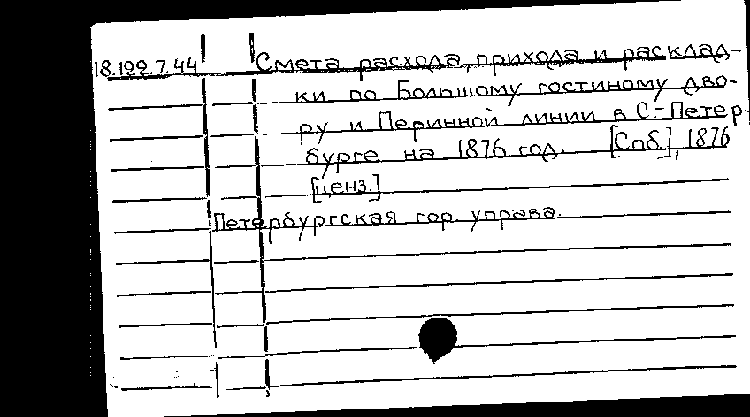 18.199.7.44 Смета расхода, прихода и расклад-
ки по Большому гостиному дво-
ру и Перинной линии в С-Петер-
бурге на 1876 год. [Спб.], 1876
[ценз.]
Петербургская гор. управа.